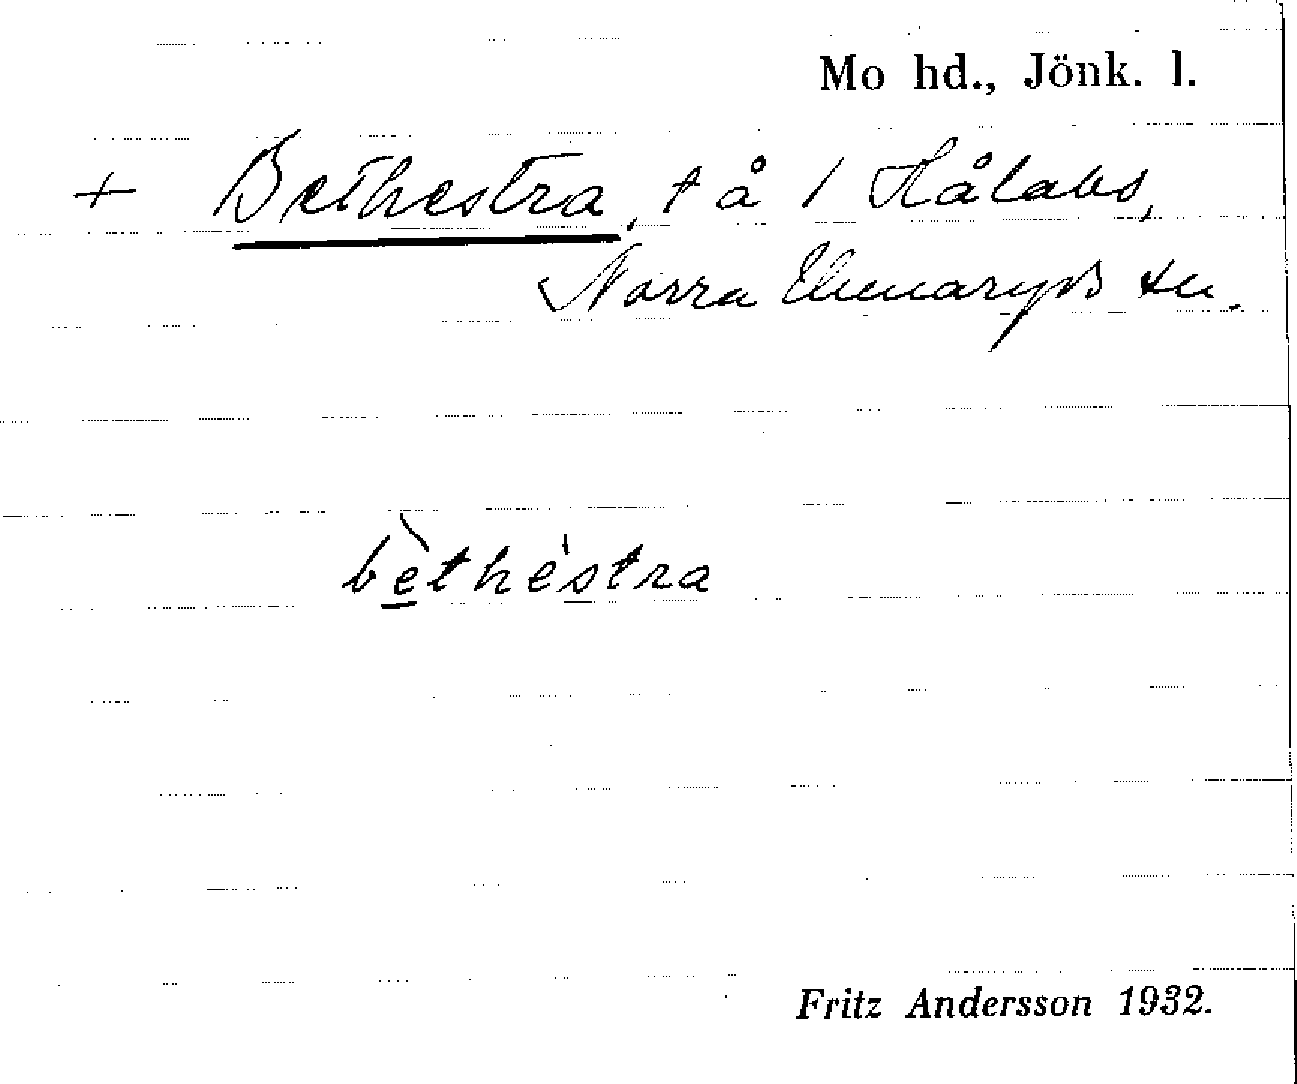 Mo hd., Jönk. l.
+ Bethestra, t å 1 Hålabo,
Norra Unnaryds sn.
bèthéstra
Fritz Andersson 1932.